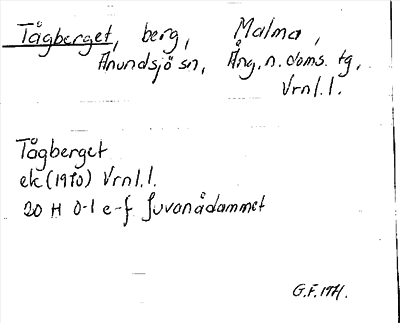 Tågberget, berg, Malma,
Anundsjö sn, Ång. n. doms. tg,
Vrnl.l.
Tågberget
ek (1970) Vrnl.l.
20 H 0-1 e-f Juvanådammet
G.F. 1971.